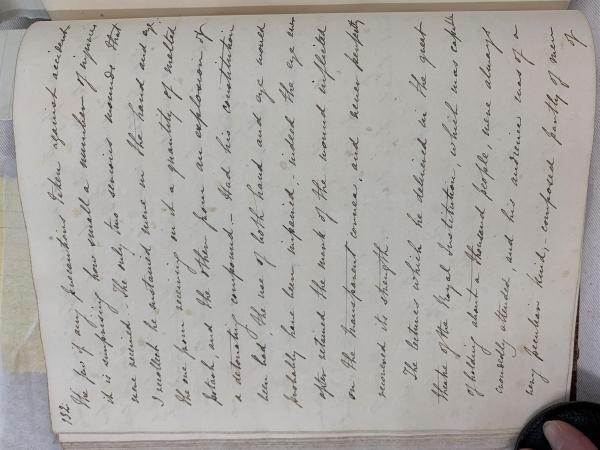 132
the use of any precautions taken against accident,
it is surprising how small a number of injuries
were received. The only two serious wounds that
I recollect he sustained were in the hand and eye
the one from receiving on it a quantity of melted
potash, and the other from an explosion of
a detonating compound. - Had his constitution
been bad the use of both hand and eye would
probably have been impaired; indeed the eye ever
after retained the mark of the wound inflicted
on the transparent cornea and never perfectly
recovered its strength.
The lectures which he delivered in the great
theatre of the Royal Institution which was capable
of holding about a thousand people, were always
crowdedly attended, and his audience was of a
very peculiar kind, - composed partly of men
of